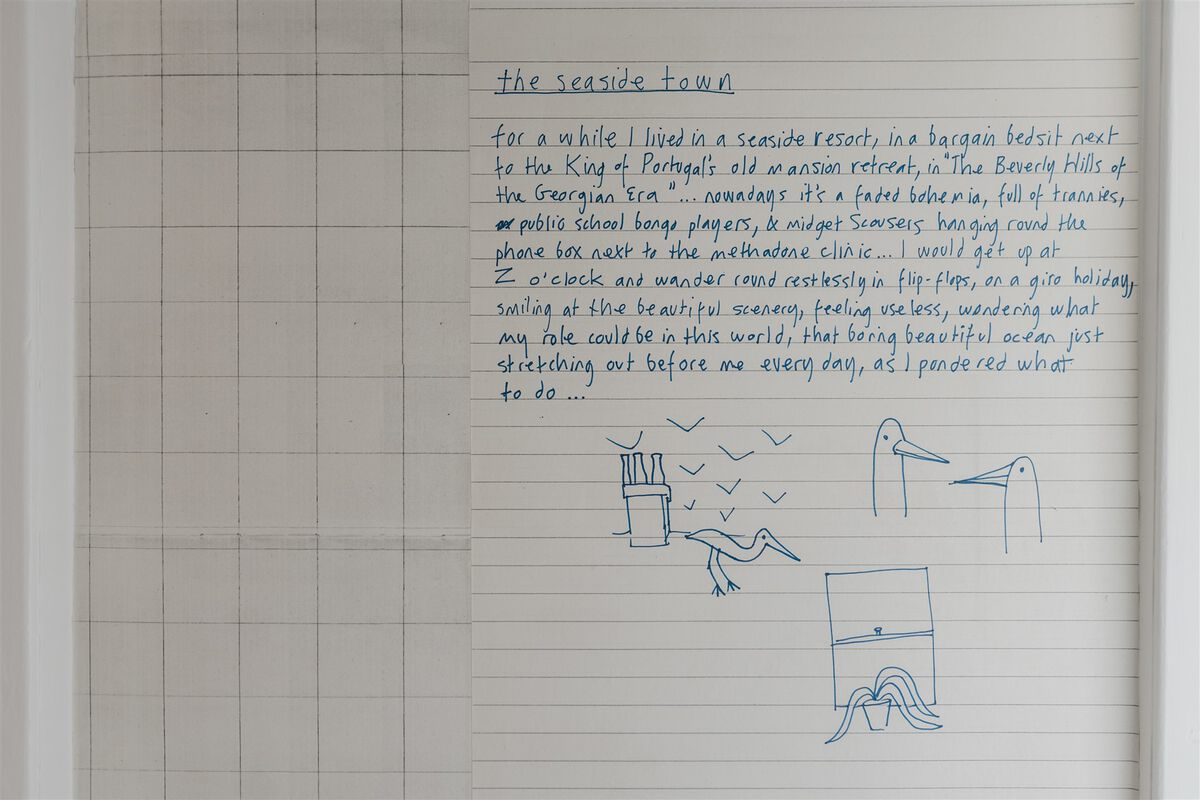 the seaside town
for a while I lived in a seaside resort, in a bargain bedsit next
to the King of Portugal's old mansion retreat, in "The Beverly Hills of
the Georgian Era"... nowadays it's a faded bohemia, full of trannies,
public school bongo players, & midget Scousers hanging round the
phone box next to the methadone clinic... I would get up at
Z o'clock and wander round restlessly in flip-flops, on a giro holiday,
smiling at the beautiful scenery, feeling useless, wondering what
my role could be in this world, that boring beautiful ocean just
stretching out before me every day, as I pondered what
to do ...